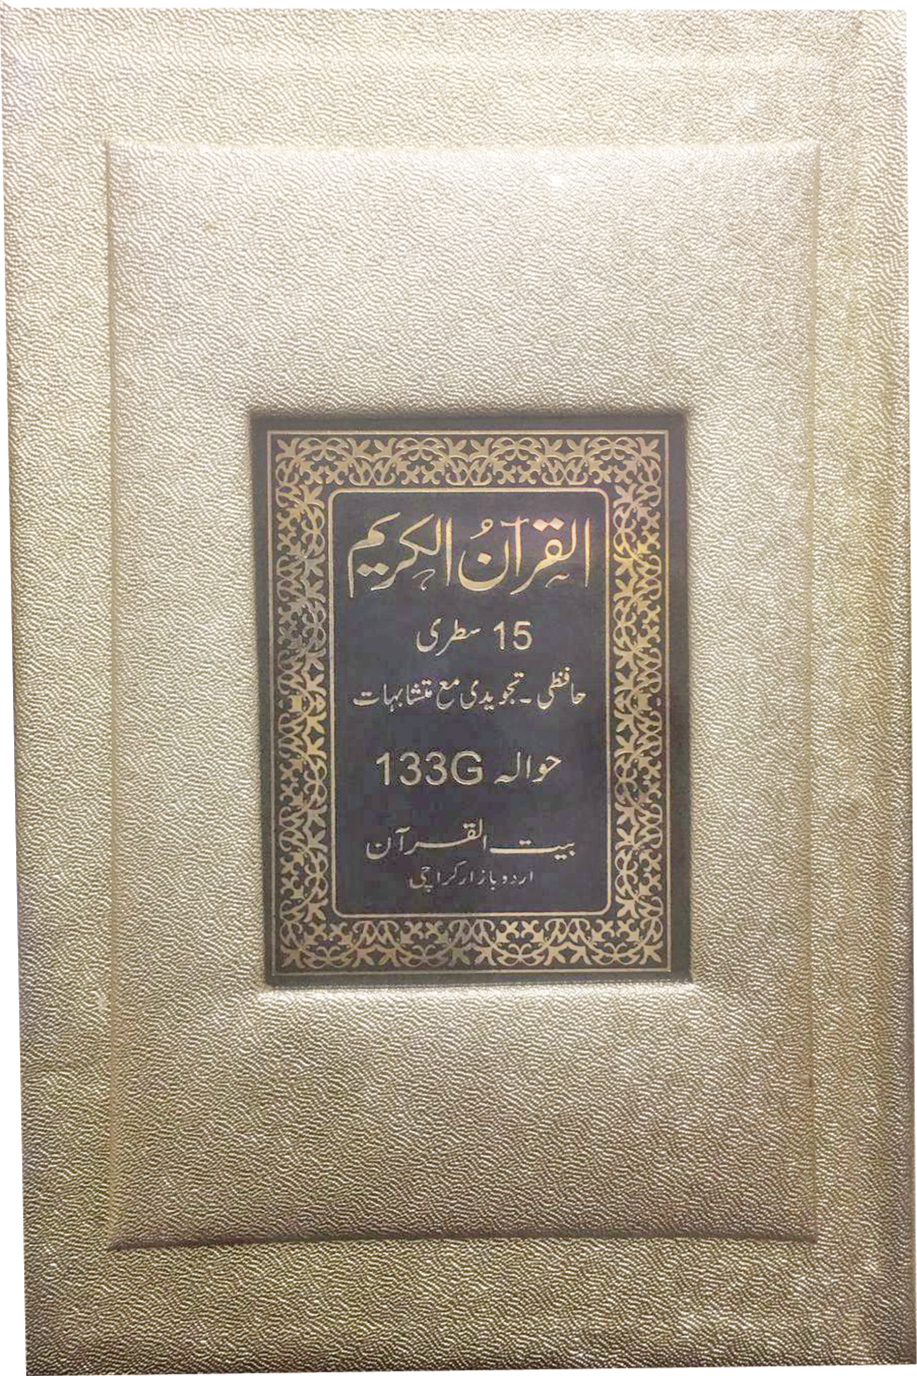 القرآنُ الكريم
15 سطری
حافظی ۔ تجویدی مع متشابہات
حوالہ 133G
بیت القرآن
اردو بازار کراچی